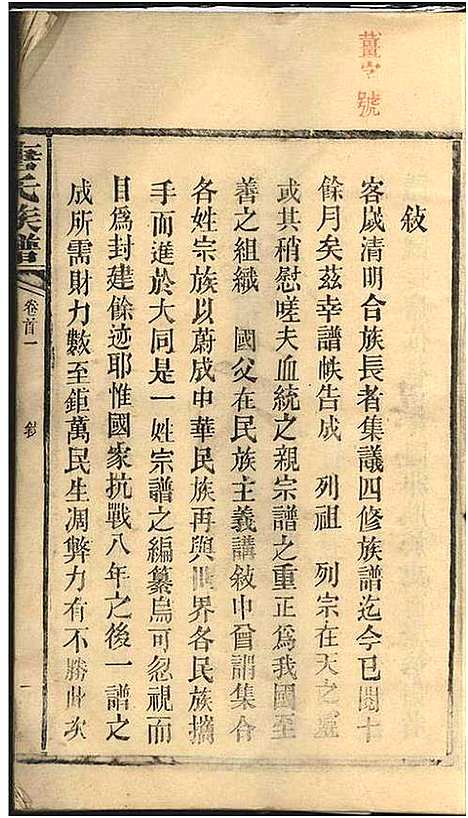 薑字號
敍
客歲清明合族長者集議四修族譜迄今已閱十
餘月矣茲幸譜帙告成 列祖 列宗在天之靈
或其稍慰嗟夫血統之親宗譜之重正爲我國至
善之組織 國父在民族主義講敍中曾謂集合
各姓宗族以蔚成中華民族再與世界各民族攜
手而進於大同是一姓宗譜之編纂烏可忽視而
目爲封建餘迹耶惟國家抗戰八年之後一譜之
成所需財力數至鉅萬民生凋弊力有不勝此次
氏族譜
卷首一
敍
一